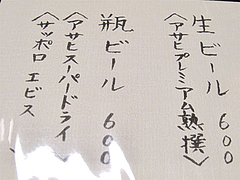 生ビール 600
〈アサヒプレミアム熟撰〉
瓶ビール 600
〈アサヒスーパードライ〉
〈サッポロ エビス 〉